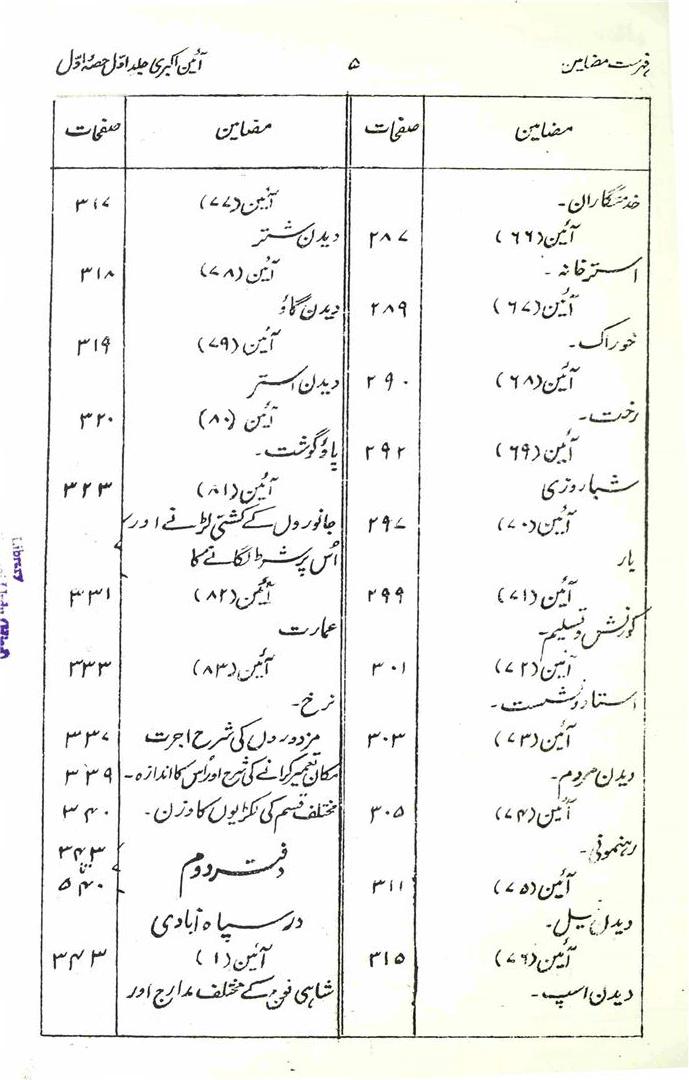 فہرست مضامین
۵
آئین اکبری جلد اوّل حصہ اوّل
مضامین
صفحات
خدمتگاران۔
آئین (۶۶)
۲۸۷
استرخانہ۔
آئین (۶۷)
۲۸۹
خوراک۔
آئین (۶۸)
۲۹۰
رخت۔
آئین (۶۹)
۲۹۲
شباروزی
آئین (۷۰)
۲۹۷
بار
آئین (۷۱)
۲۹۹
کورنش و تسلیم۔
آئین (۷۲)
۳۰۱
استاد و نشست۔
آئین (۷۳)
۳۰۳
دیدن مردم۔
آئین (۷۴)
۳۰۵
رہنمونی۔
آئین (۷۵)
۳۱۱
دیدن فیل۔
آئین (۷۶)
۳۱۵
دیدن اسپ۔
مضامین
صفحات
آئین (۷۷)
۳۱۷
دیدن شتر
آئین (۷۸)
۳۱۸
دیدن گاؤ
آئین (۷۹)
۳۱۹
دیدن استر
آئین (۸۰)
۳۲۰
پاؤ گوشت۔
آئین (۸۱)
۳۲۳
جانوروں کے کشتی لڑانے اور
اُس پر شرط لگانے کا
آئین (۸۲)
۳۳۱
عمارت
آئین (۸۳)
۳۳۳
نرخ۔
مزدوروں کی شرح اجرت
۳۳۷
مکان تعمیر کرانے کی شرح اور اُس کا اندازہ۔
۳۳۹
مختلف قسم کی لکڑیوں کا وزن۔
۳۴۰
دفتر دوم
۳۴۳
تا
۵۴۰
در سپاہ آبادی
آئین (۱)
۳۴۳
شاہی فوج کے مختلف مدارج اور
Library